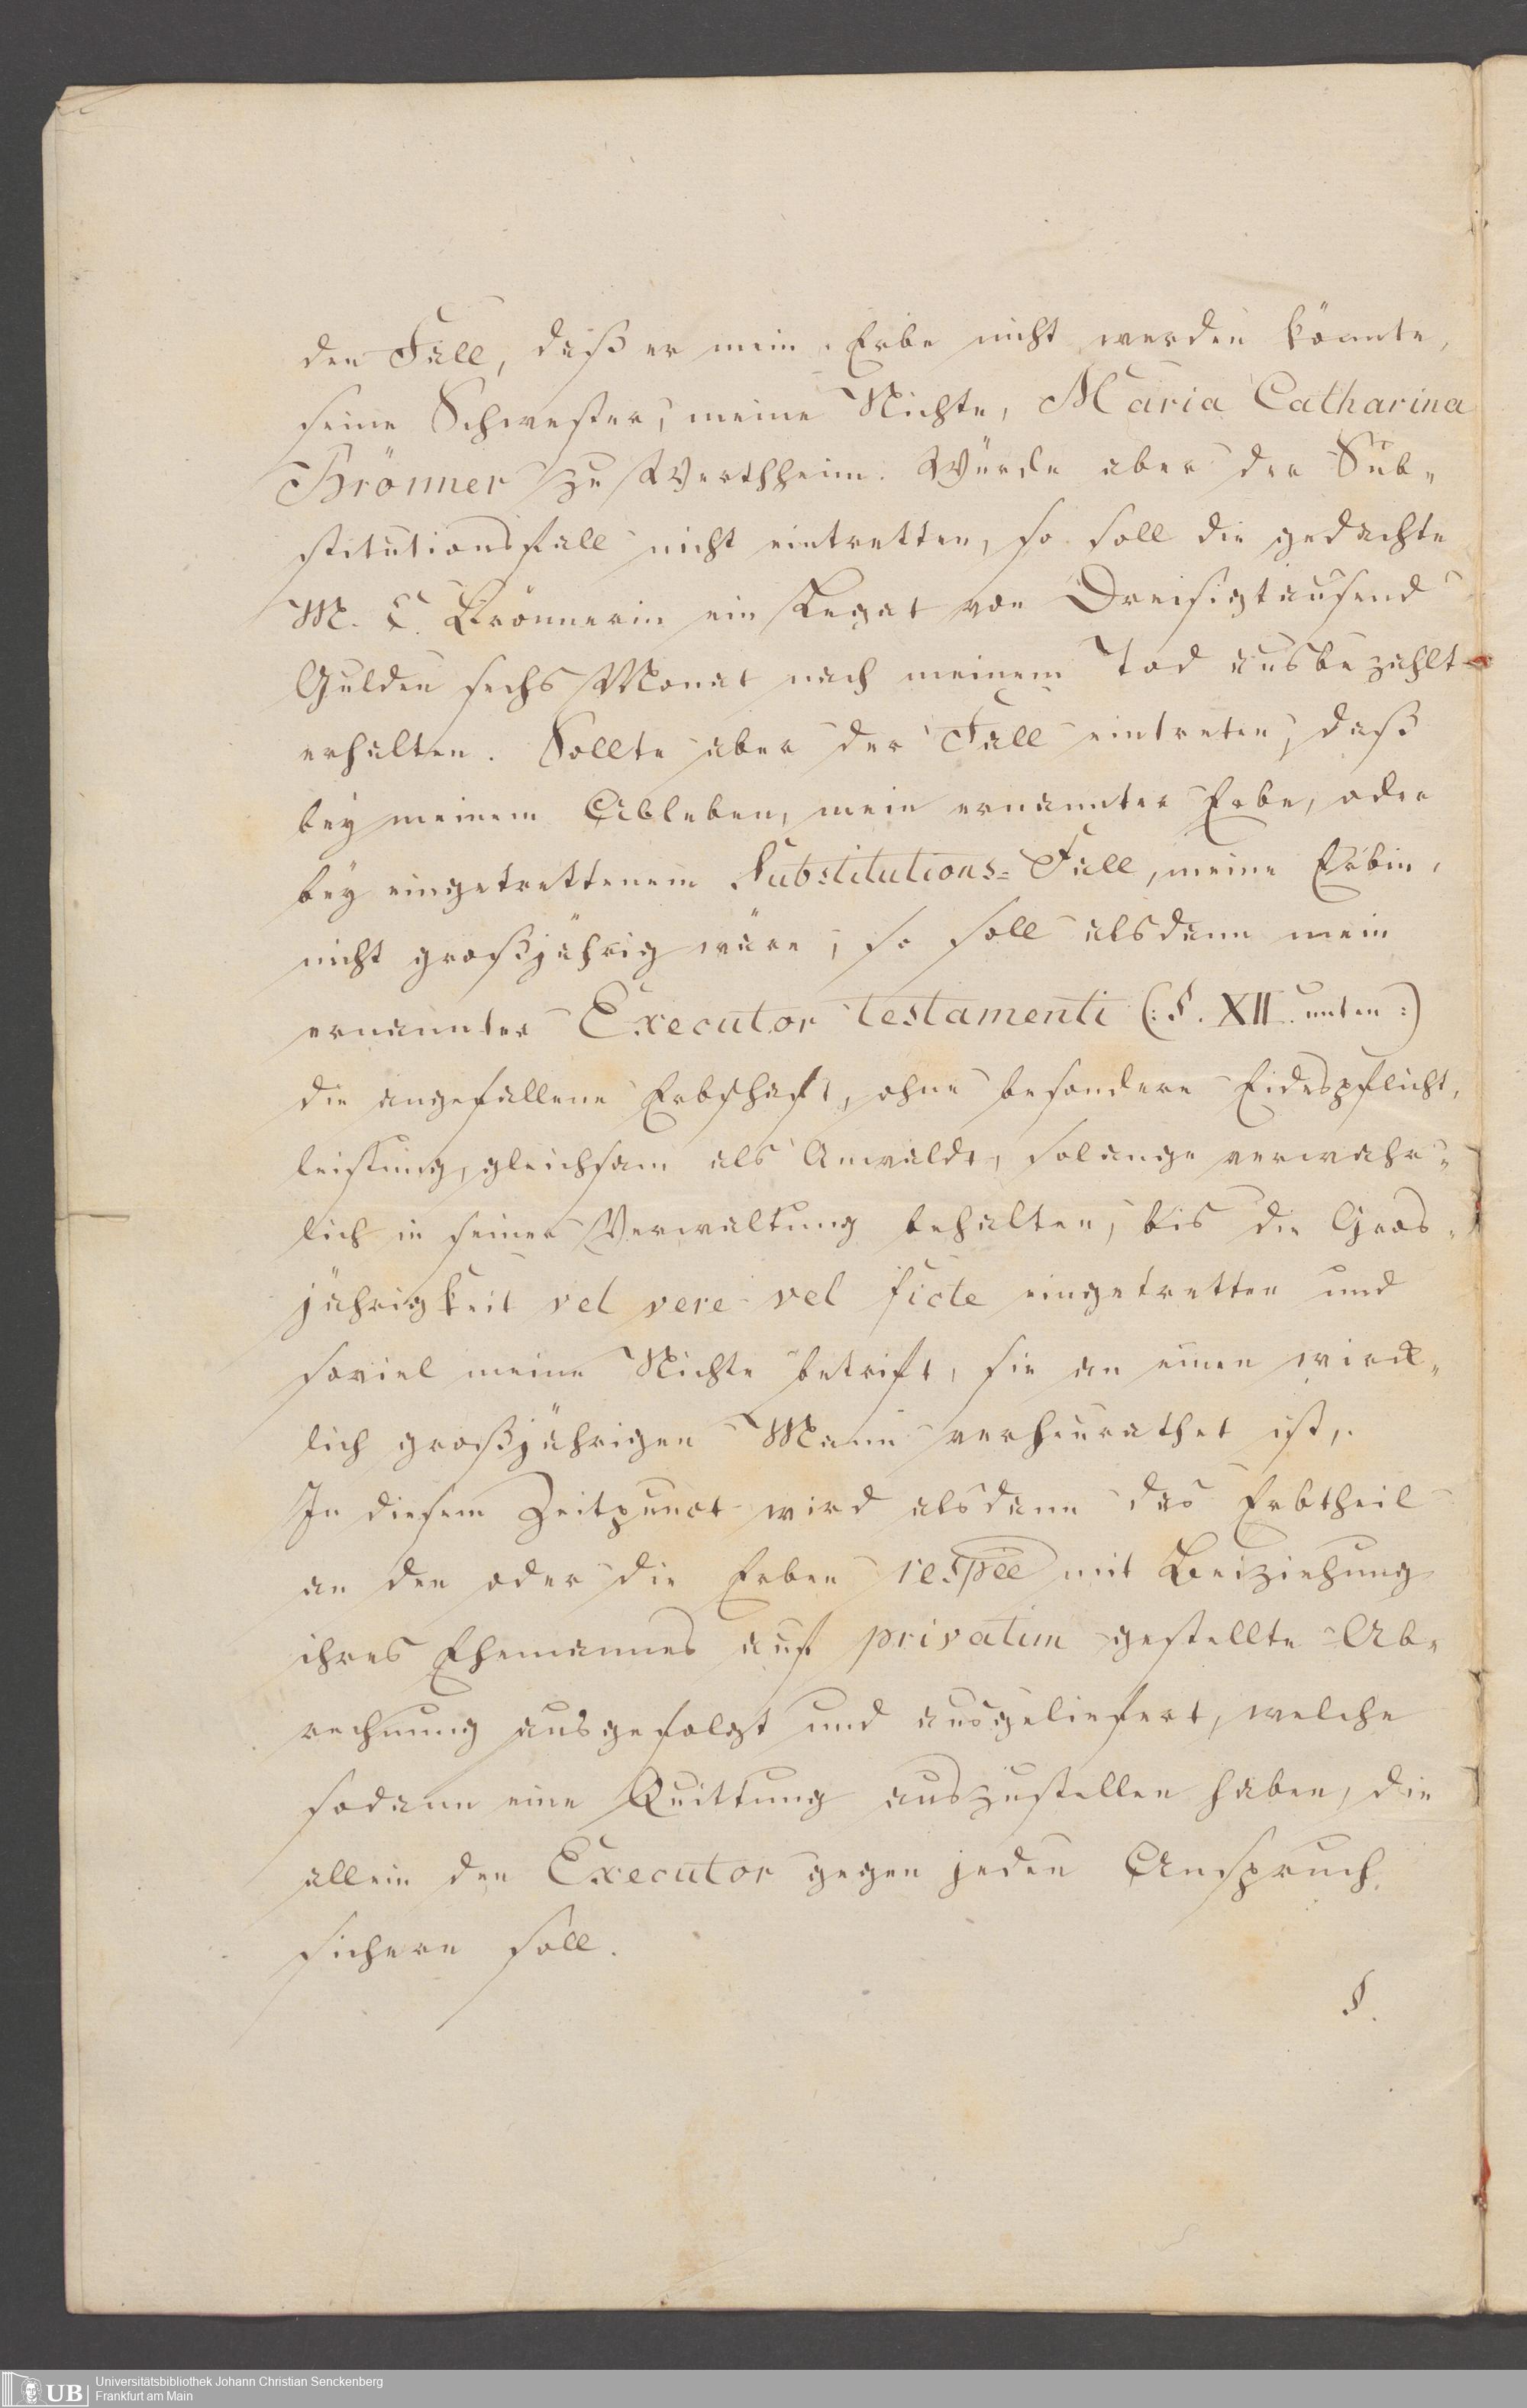 den Fall, daß er mein Erbe nicht werden könnte,
seine Schwester, meine Nichte, Maria Catharina
Brönner zu Werthheim. Würde aber der Sub-
stitutionsfall nicht eintretten, so soll die gedachte
M. C. Brönnerin ein Legat von Dreisigtausend
Gulden sechs Monat nach meinem Tod ausbezahlt
erhalten. Sollte aber der Fall eintreten, daß
bey meinem Ableben, mein ernannter Erbe, oder
bey eingetrettenem Substitutions-Fall, meine Erbin,
nicht großjährig wäre, so soll alsdann mein
ernannter Executor testamenti (: §. XII. unten :)
die angefallene Erbschaft, ohne besondere Eidespflicht,
leistung, gleichsam als Anwaldt, solange verwahr-
lich in seiner Verwaltung behalten, bis die Gros-
jährigkeit vel vere vel ficte eingetretten und
soviel meine Nichte betrift, sie an einen wirck-
lich großjährigen Mann verheurathet ist,.
In diesem Zeitpunct wird alsdann das Erbtheil
an den oder die Erben respee mit Beiziehung
ihres Ehemannes auf privatim gestellte Ab-
rechnung ausgefolgt und ausgeliefert, welche
sodann eine Quittung auszustellen haben, die
allein den Executor gegen jeden Anspruch
sichern soll.
§.
UB Universitätsbibliothek Johann Christian Senckenberg
Frankfurt am Main